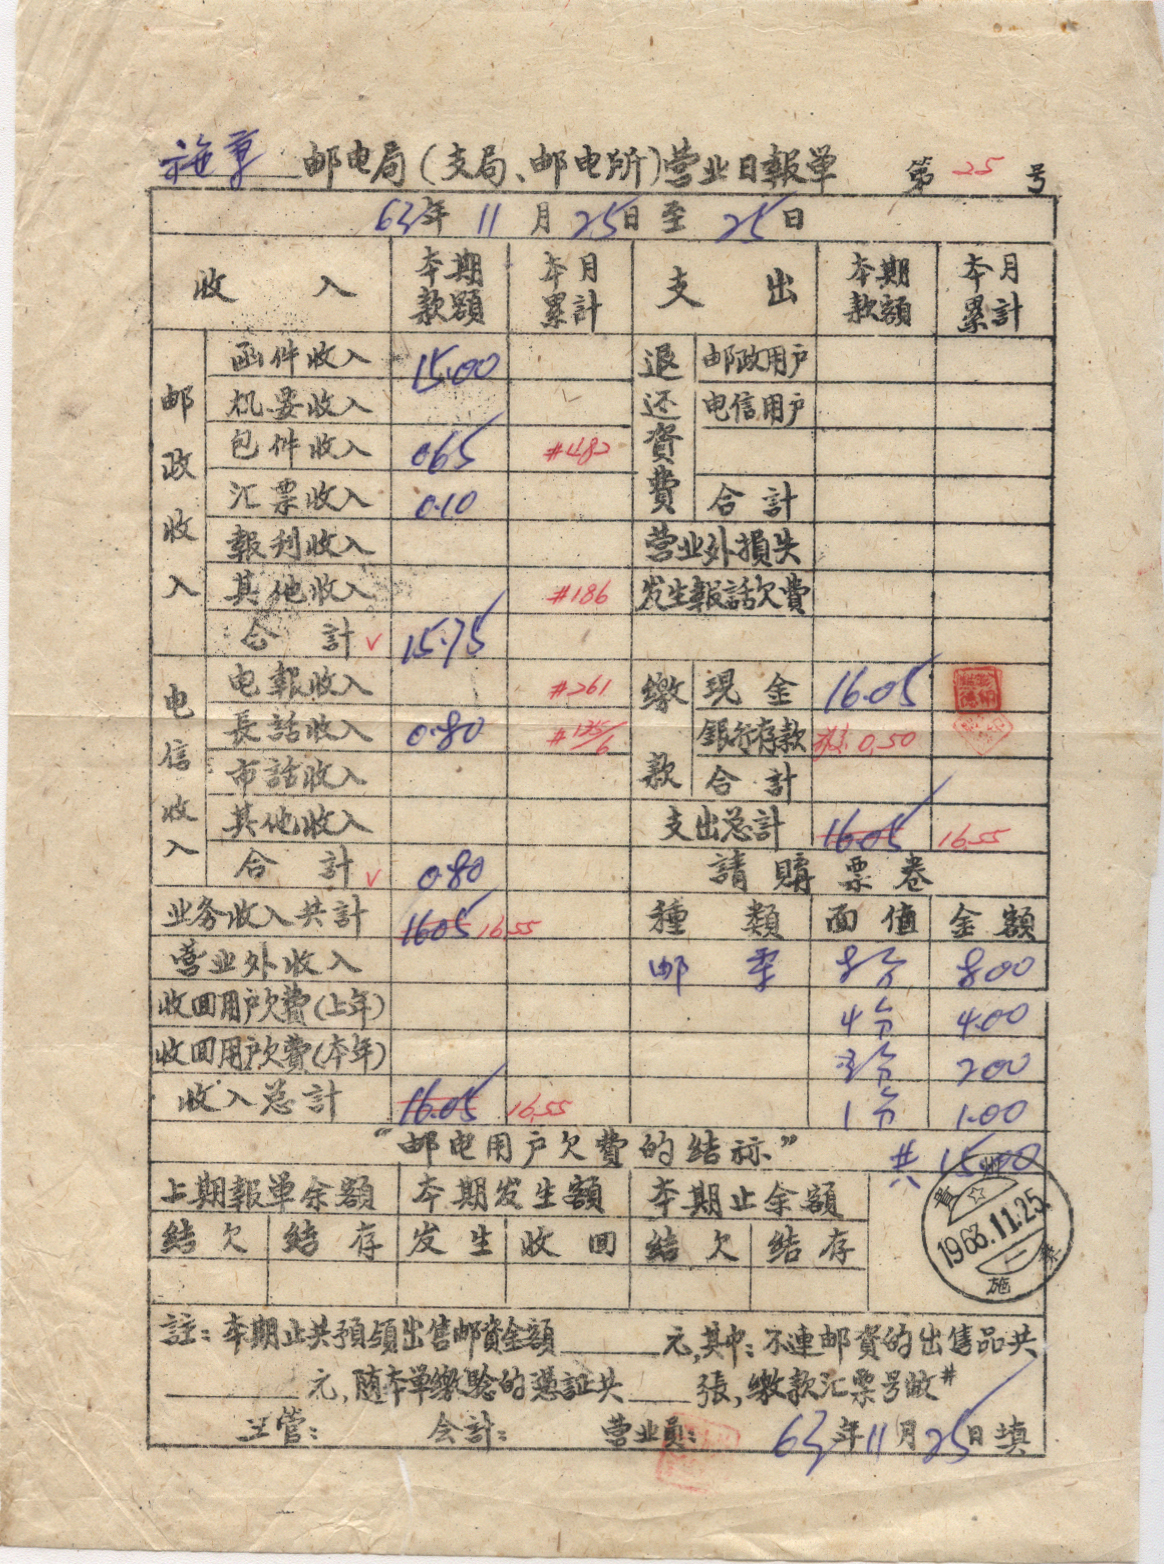 施章 邮电局(支局、邮电所)营业日報单 第 25 号
63年 11 月 25日至 25日
收 入 本期款額 本月累計 支 出 本期款額 本月累計
邮政收入 函件收入 15.00 退还資費 邮政用户
机要收入 电信用户
包件收入 0.65 #482
汇票收入 0.10 合計
報刊收入 营业外損失
其他收入 #186 发生報話欠費
合 計 √ 15.75
电信收入 电報收入 #261 缴款 現金 16.05
長話收入 0.80 #135/6 銀行存款 0.50
市話收入 合計
其他收入 支出总計 16.05 16.55
合 計 √ 0.80 請購票卷
业务收入共計 16.05 16.55 種 類 面值 金額
营业外收入 邮票 8分 8.00
收回用户欠費(上年) 4分 4.00
收回用户欠費(本年) 2分 2.00
收入总計 16.05 16.55 1分 1.00
“邮电用户欠費的结标” 共 15.00
上期報单余額 本期发生額 本期止余額
结欠 结存 发生 收回 结欠 结存
貴州
1963.11.25
施
註:本期止共預領出售邮資金額 元,其中:不連邮資的出售品共
元,随本单缴驗的憑証共 張,缴款汇票号碼#
主管: 会計: 营业員: 63年11月25日填